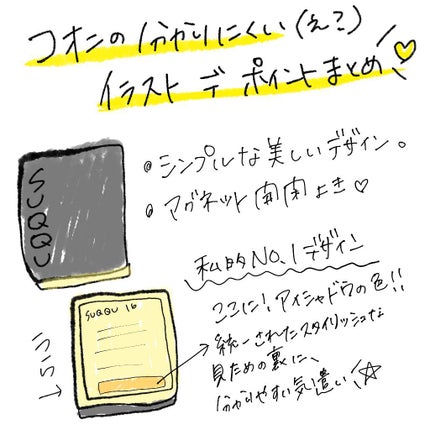 コオニの分かりにくい(え?)
イラストでポイントまとめ!
SUQQU
・シンプルな美しいデザイン。
・マグネット開閉よき♡
私的NO.1デザイン
ここに!アイシャドウの色!!
SUQQU 16
統一されたスタイリッシュな
見ための裏に、
分かりやすい気遣い!☆
うら